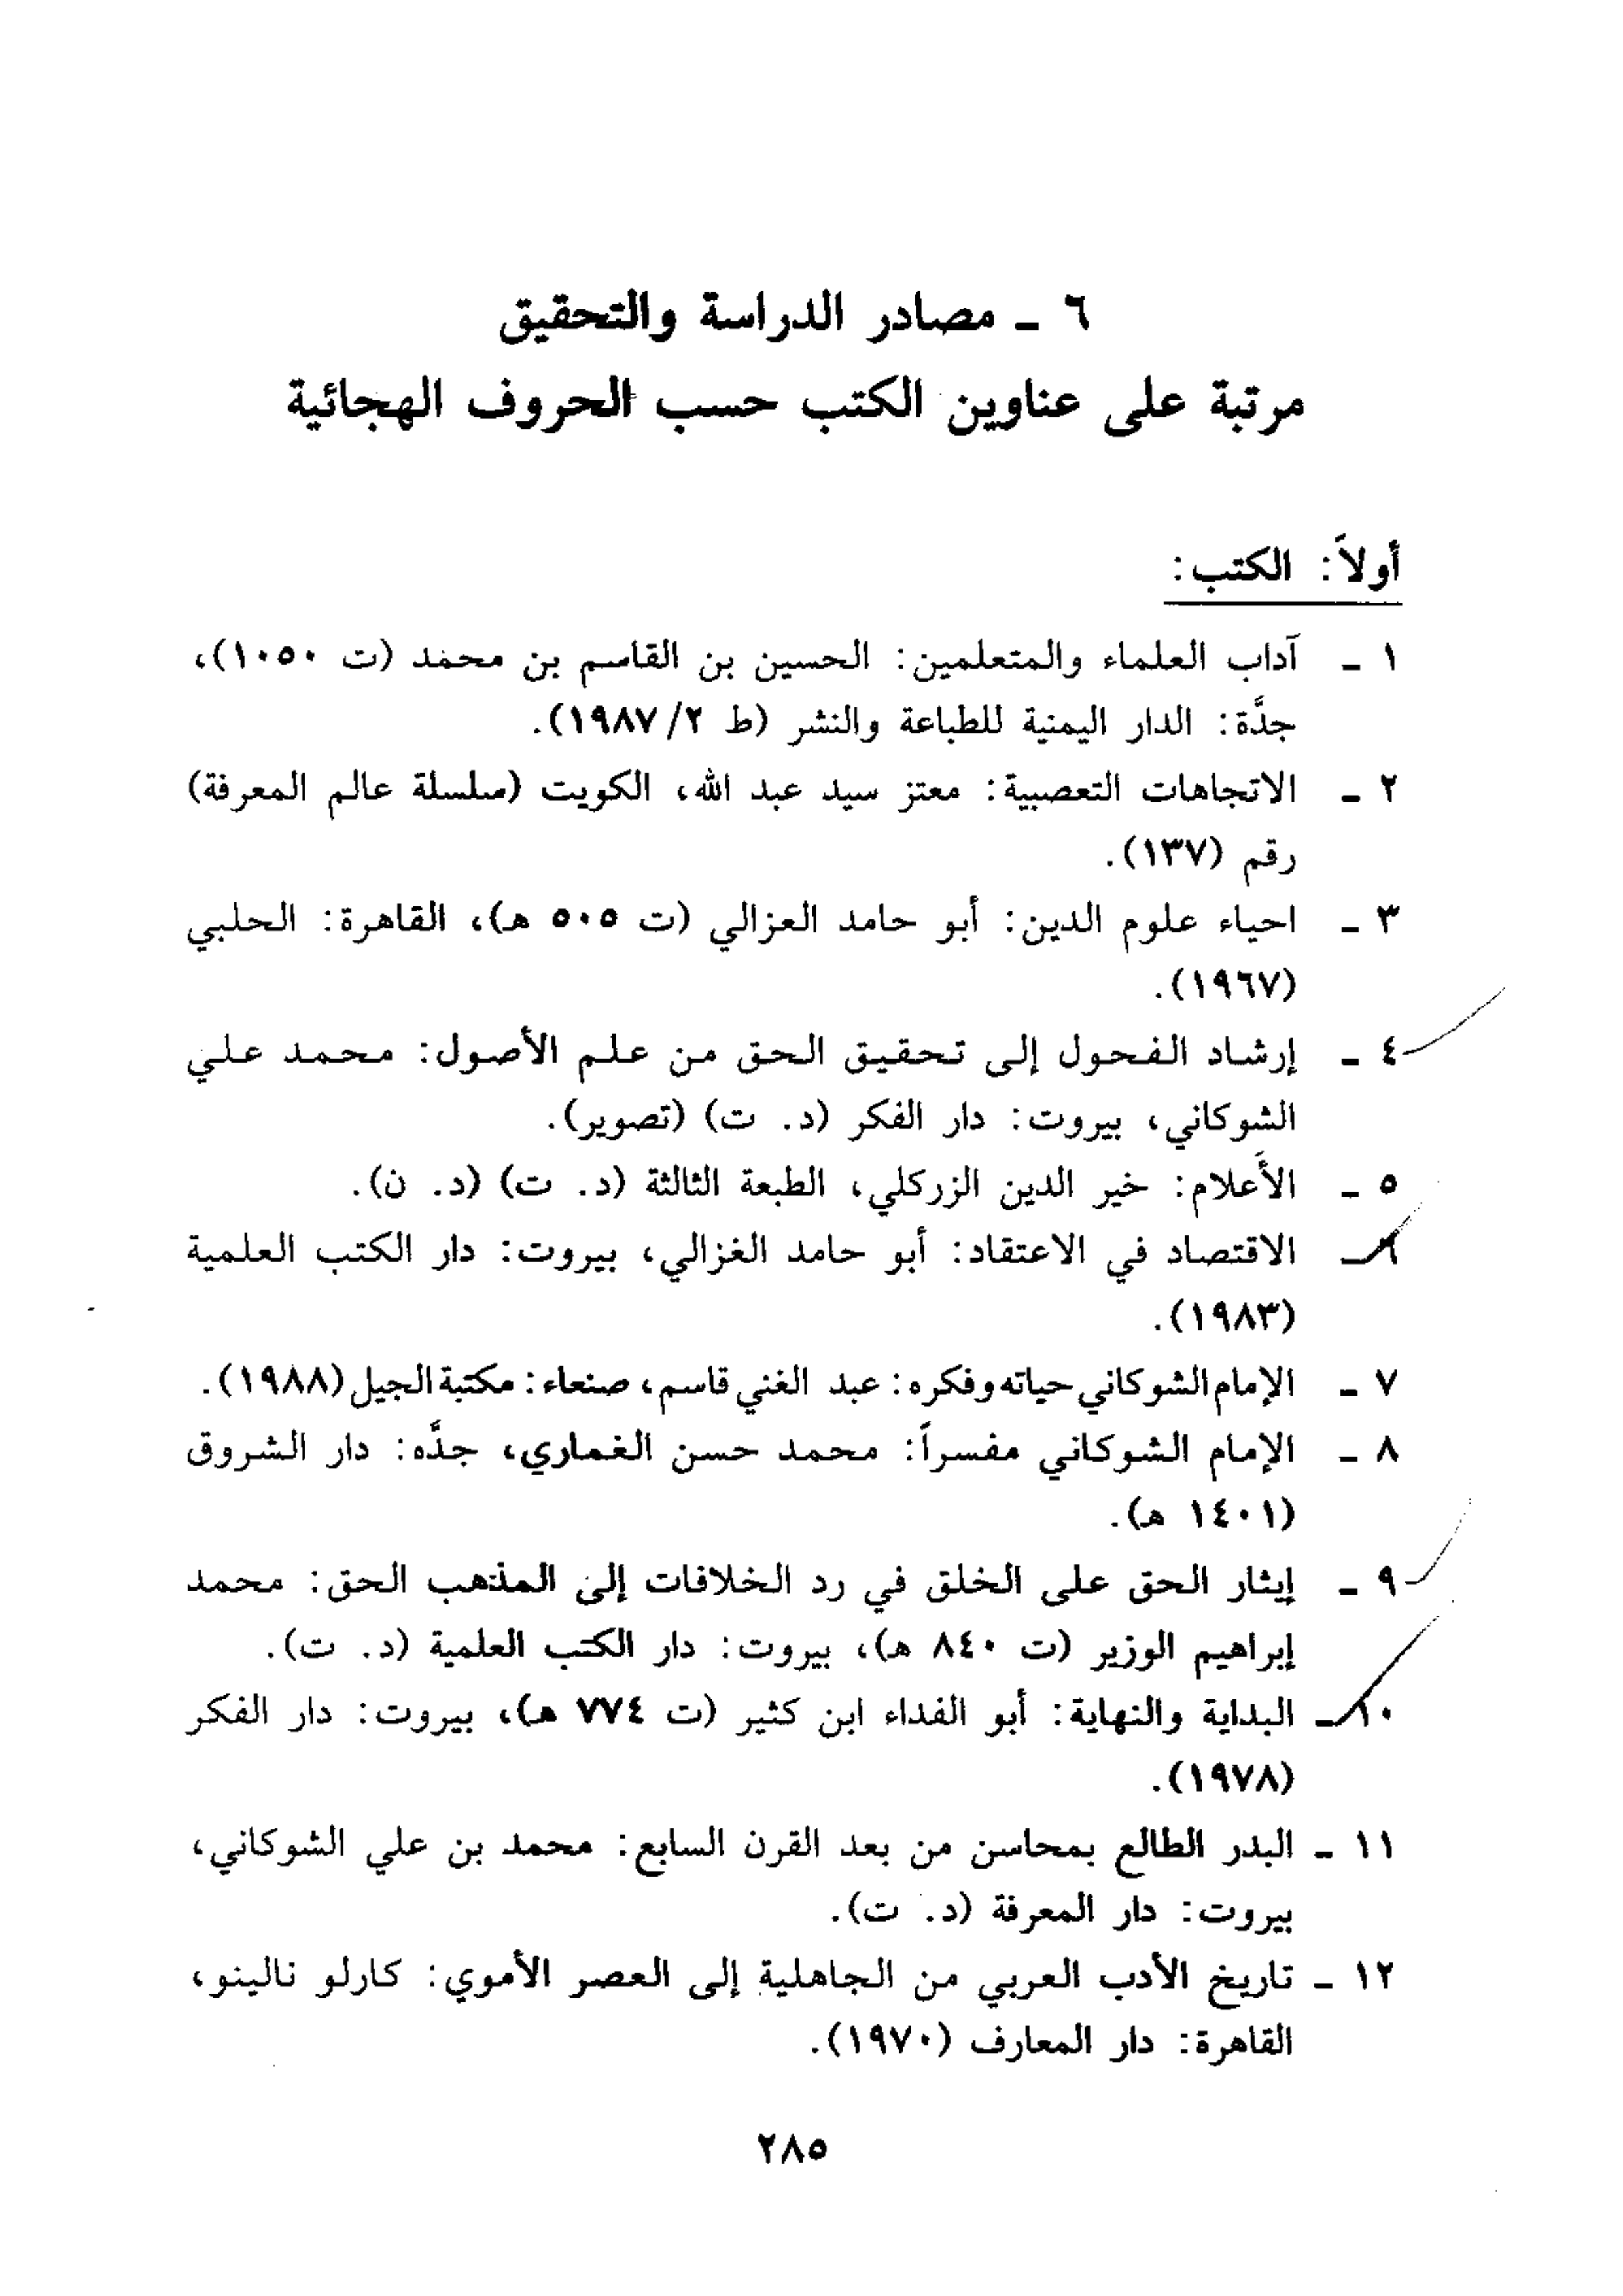 ٦ ـ مصادر الدراسة والتحقيق
مرتبة على عناوين الكتب حسب الحروف الهجائية
أولاً: الكتب:
١ ـ آداب العلماء والمتعلمين: الحسين بن القاسم بن محمد (ت ١٠٥٠)،
جدَّة: الدار اليمنية للطباعة والنشر (ط ٢/ ١٩٨٧).
٢ ـ الاتجاهات التعصبية: معتز سيد عبد الله، الكويت (سلسلة عالم المعرفة)
رقم (١٣٧).
٣ ـ احياء علوم الدين: أبو حامد العزالي (ت ٥٠٥ هـ)، القاهرة: الحلبي
(١٩٦٧).
٤ ـ إرشاد الفحول إلى تحقيق الحق من علم الأصول: محمد علي
الشوكاني، بيروت: دار الفكر (د. ت) (تصوير).
٥ ـ الأَعلام: خير الدين الزركلي، الطبعة الثالثة (د. ت) (د. ن).
٦ ـ الاقتصاد في الاعتقاد: أبو حامد الغزالي، بيروت: دار الكتب العلمية
(١٩٨٣).
٧ ـ الإمام الشوكاني حياته وفكره: عبد الغني قاسم، صنعاء: مكتبة الجيل (١٩٨٨).
٨ ـ الإمام الشوكاني مفسراً: محمد حسن الغماري، جدَّه: دار الشروق
(١٤٠١ هـ).
٩ ـ إيثار الحق على الخلق في رد الخلافات إلى المذهب الحق: محمد
إبراهيم الوزير (ت ٨٤٠ هـ)، بيروت: دار الكتب العلمية (د. ت).
١٠ ـ البداية والنهاية: أبو الفداء ابن كثير (ت ٧٧٤ هـ)، بيروت: دار الفكر
(١٩٧٨).
١١ ـ البدر الطالع بمحاسن من بعد القرن السابع: محمد بن علي الشوكاني،
بيروت: دار المعرفة (د. ت).
١٢ ـ تاريخ الأدب العربي من الجاهلية إلى العصر الأموي: كارلو نالينو،
القاهرة: دار المعارف (١٩٧٠).
٢٨٥